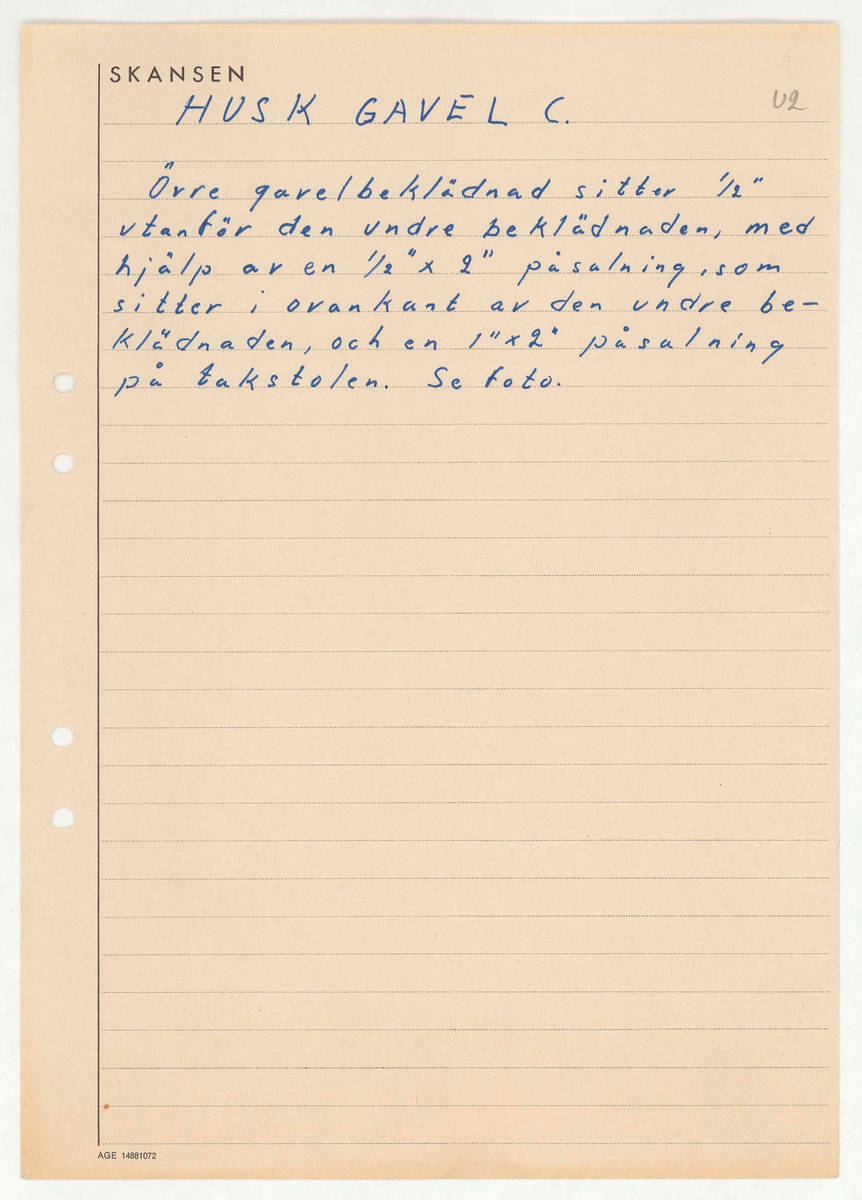 SKANSEN
HUSK GAVEL C.
U2
Övre gavelbeklädnad sitter 1/2"
utanför den undre beklädnaden, med
hjälp av en 1/2" x 2" påsalning, som
sitter i ovankant av den undre be-
klädnaden, och en 1" x 2" påsalning
på takstolen. Se foto.
AGE 14881072